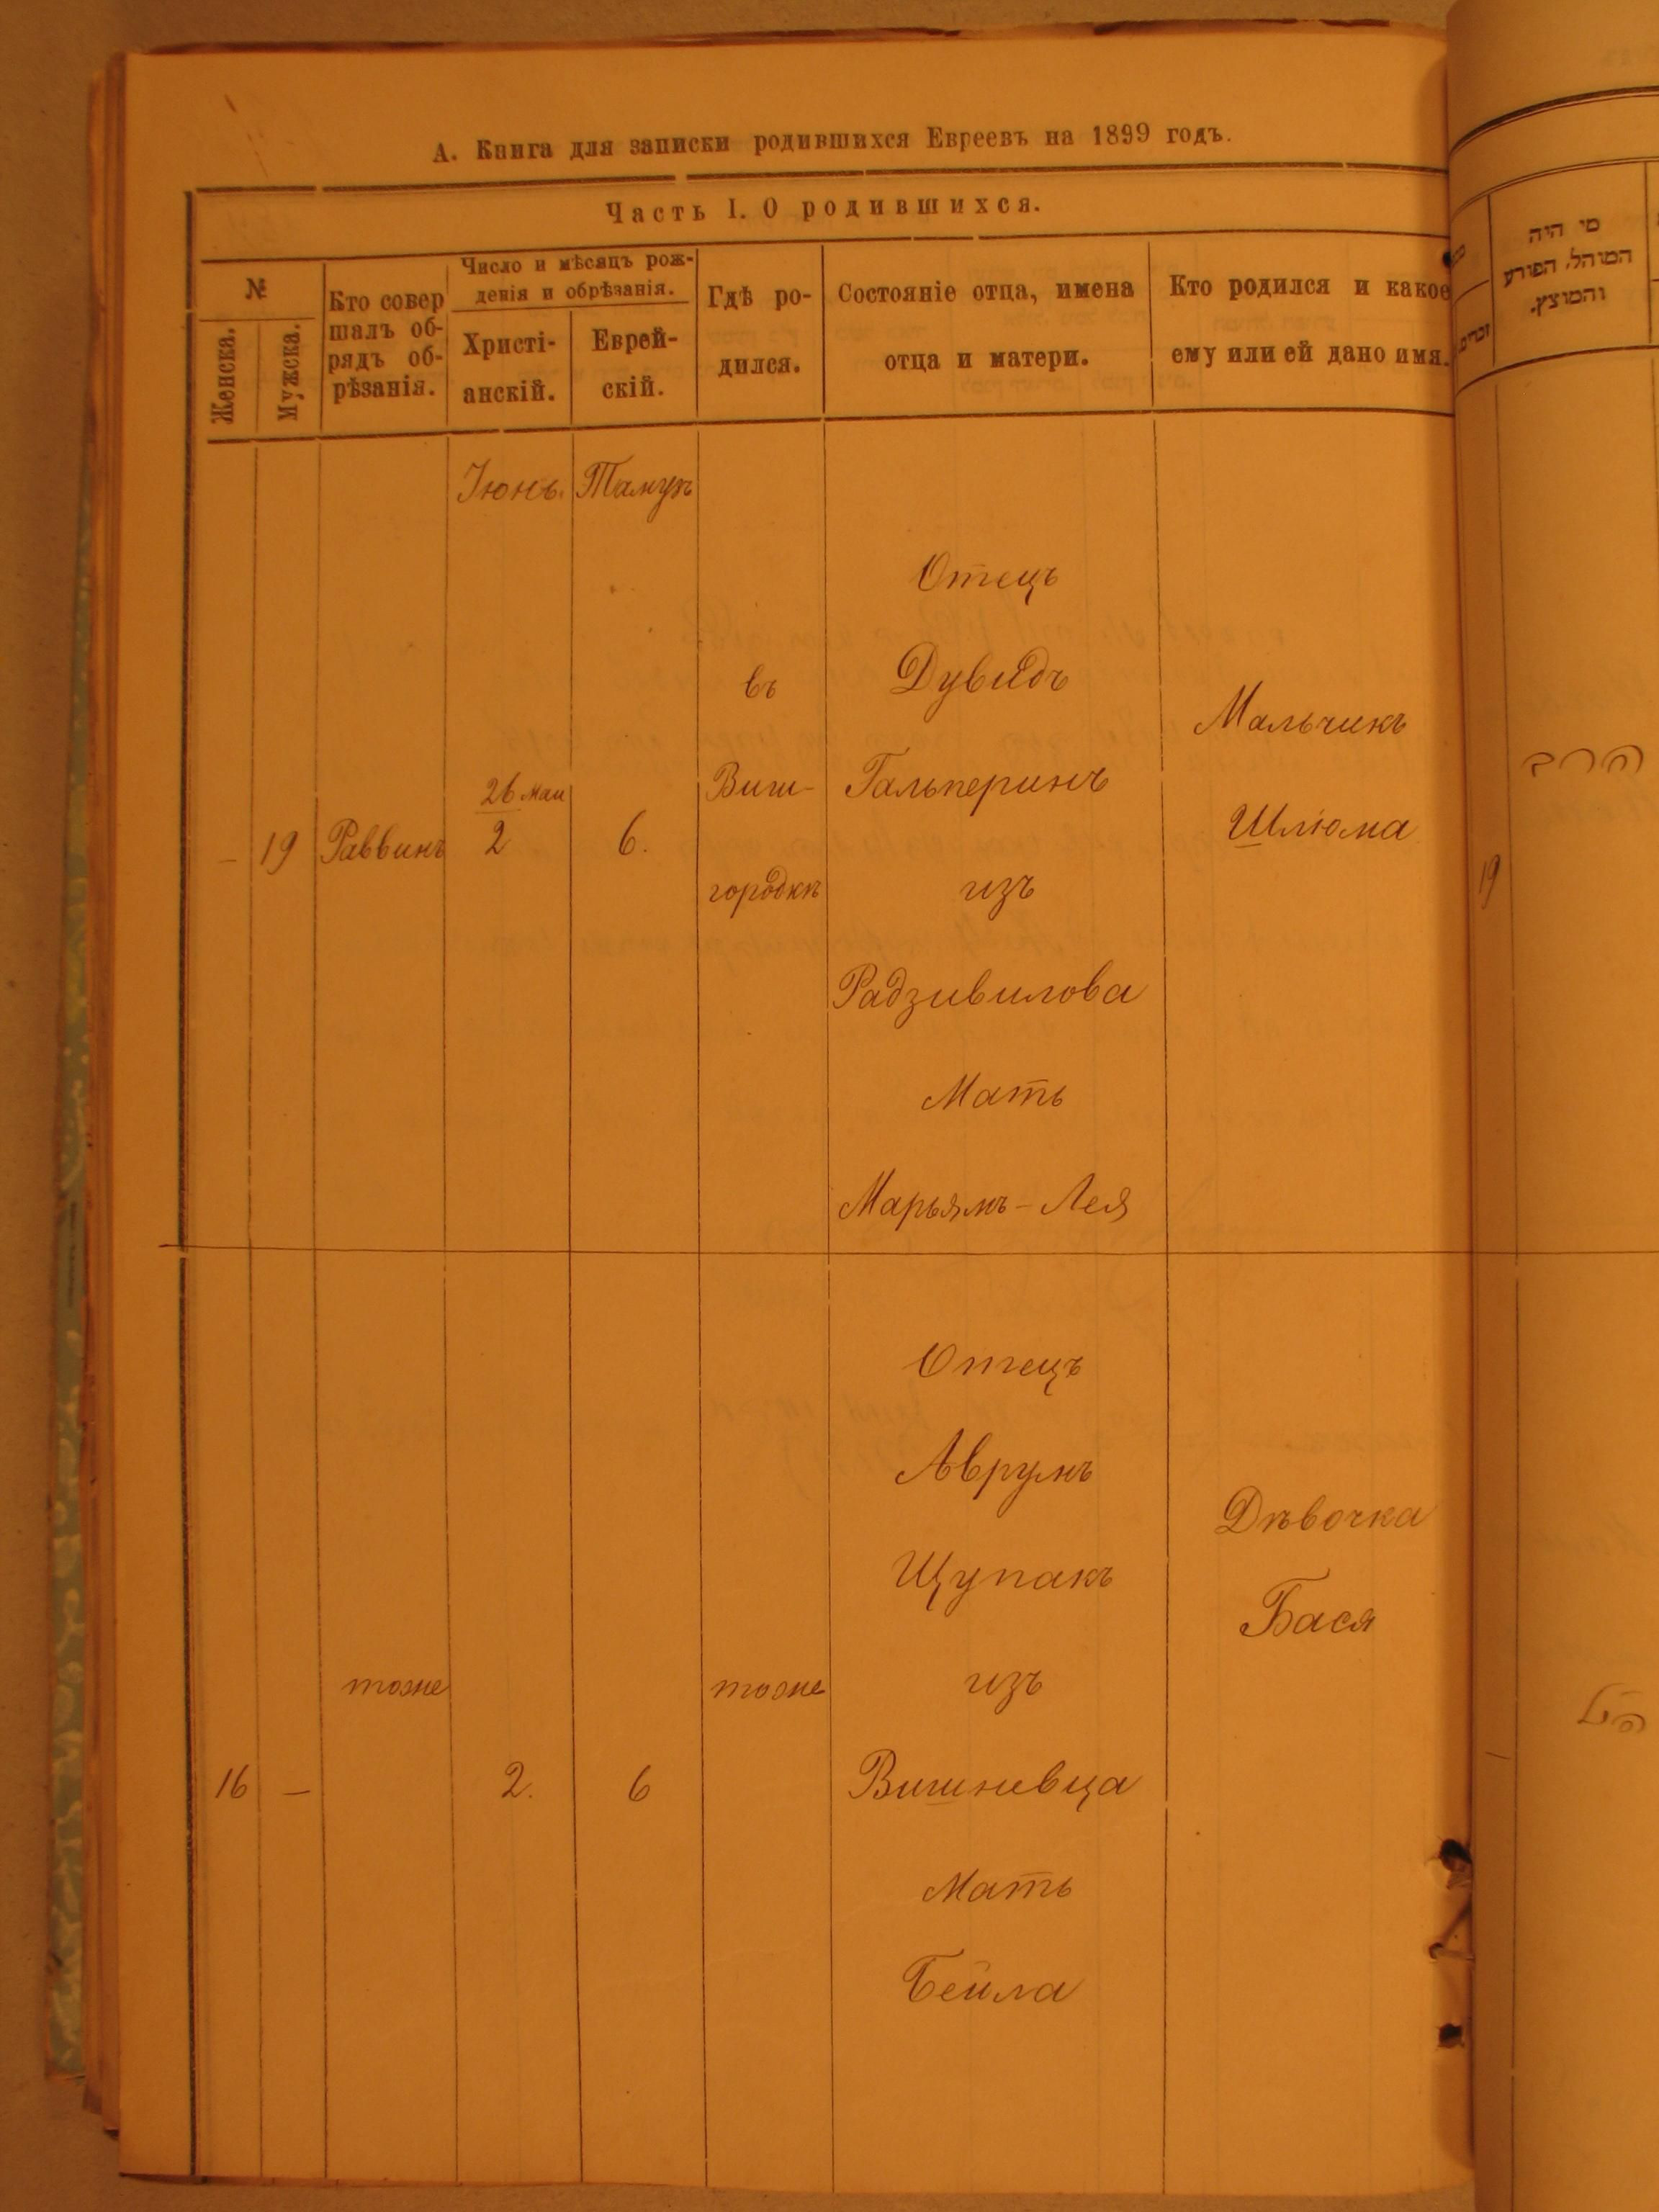 А. Книга для записки родившихся Евреевъ на 1899 годъ.
Часть I. О родившихся.
№
Женска.
Мужска.
Кто совер
шалъ об-
рядъ об-
рѣзанія.
Число и мѣсяцъ рож-
денія и обрѣзанія.
Христі-
анскій.
Еврей-
скій.
Гдѣ ро-
дился.
Состояніе отца, имена
отца и матери.
Кто родился и какое
ему или ей дано имя.
Іюнь.
Тамузъ
–
19
Раввинъ
26 мая
2
6.
въ
Виш-
городкѣ
Отецъ
Дувидъ
Гальперинъ
изъ
Радзивилова
Мать
Марьямъ-Лея
Мальчикъ
Шлiома
16
–
тоже
2.
6
тоже
Отецъ
Аврумъ
Щупакъ
изъ
Вишневца
Мать
Бейла
Дѣвочка
Бася
מי היה
המוהל, הפורע
והמוצץ.
זכרים.
הרב
19